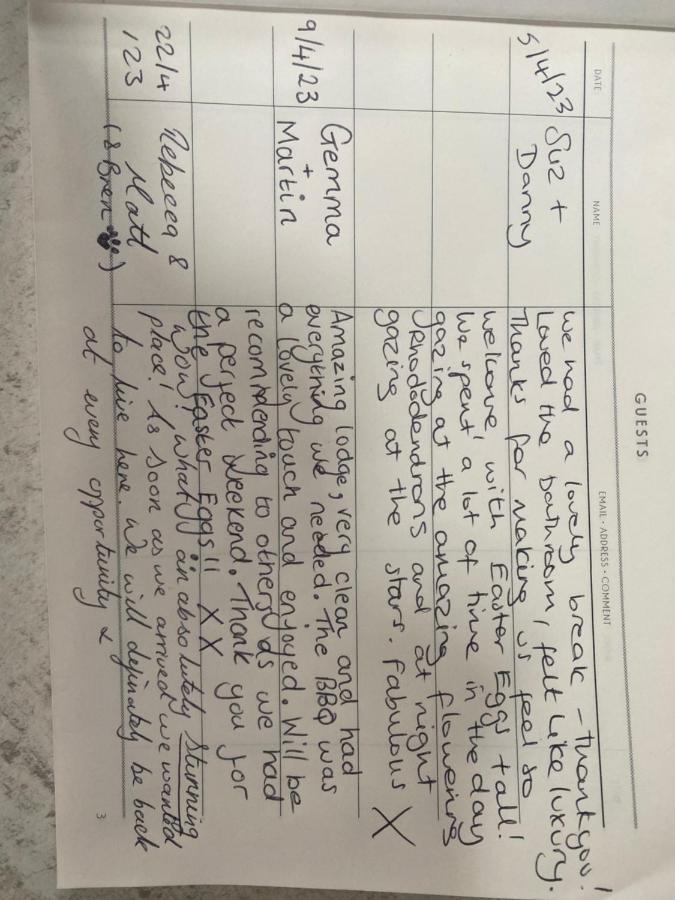 GUESTS
DATE NAME EMAIL • ADDRESS • COMMENT
5/4/23 Suz +
Danny
We had a lovely break – thankyou!
Loved the bathroom, felt like luxury.
Thanks for making us feel so
welcome, with Easter Eggs + all!
We spent a lot of time in the day
gazing at the amazing flowering
Rhododendrons and at night
gazing at the stars. Fabulous X
9/4/23 Gemma
+
Martin
Amazing lodge, very clean and had
everything we needed. The BBQ was
a lovely touch and enjoyed. Will be
recommending to others as we had
a perfect weekend. Thank you for
the Easter Eggs!! X X
22/4
/23
Rebecca &
Matt
(& Bren 🐾)
Wow! What an absolutely stunning
place! As soon as we arrived we wanted
to live here. We will definately be back
at every opportunity x
3